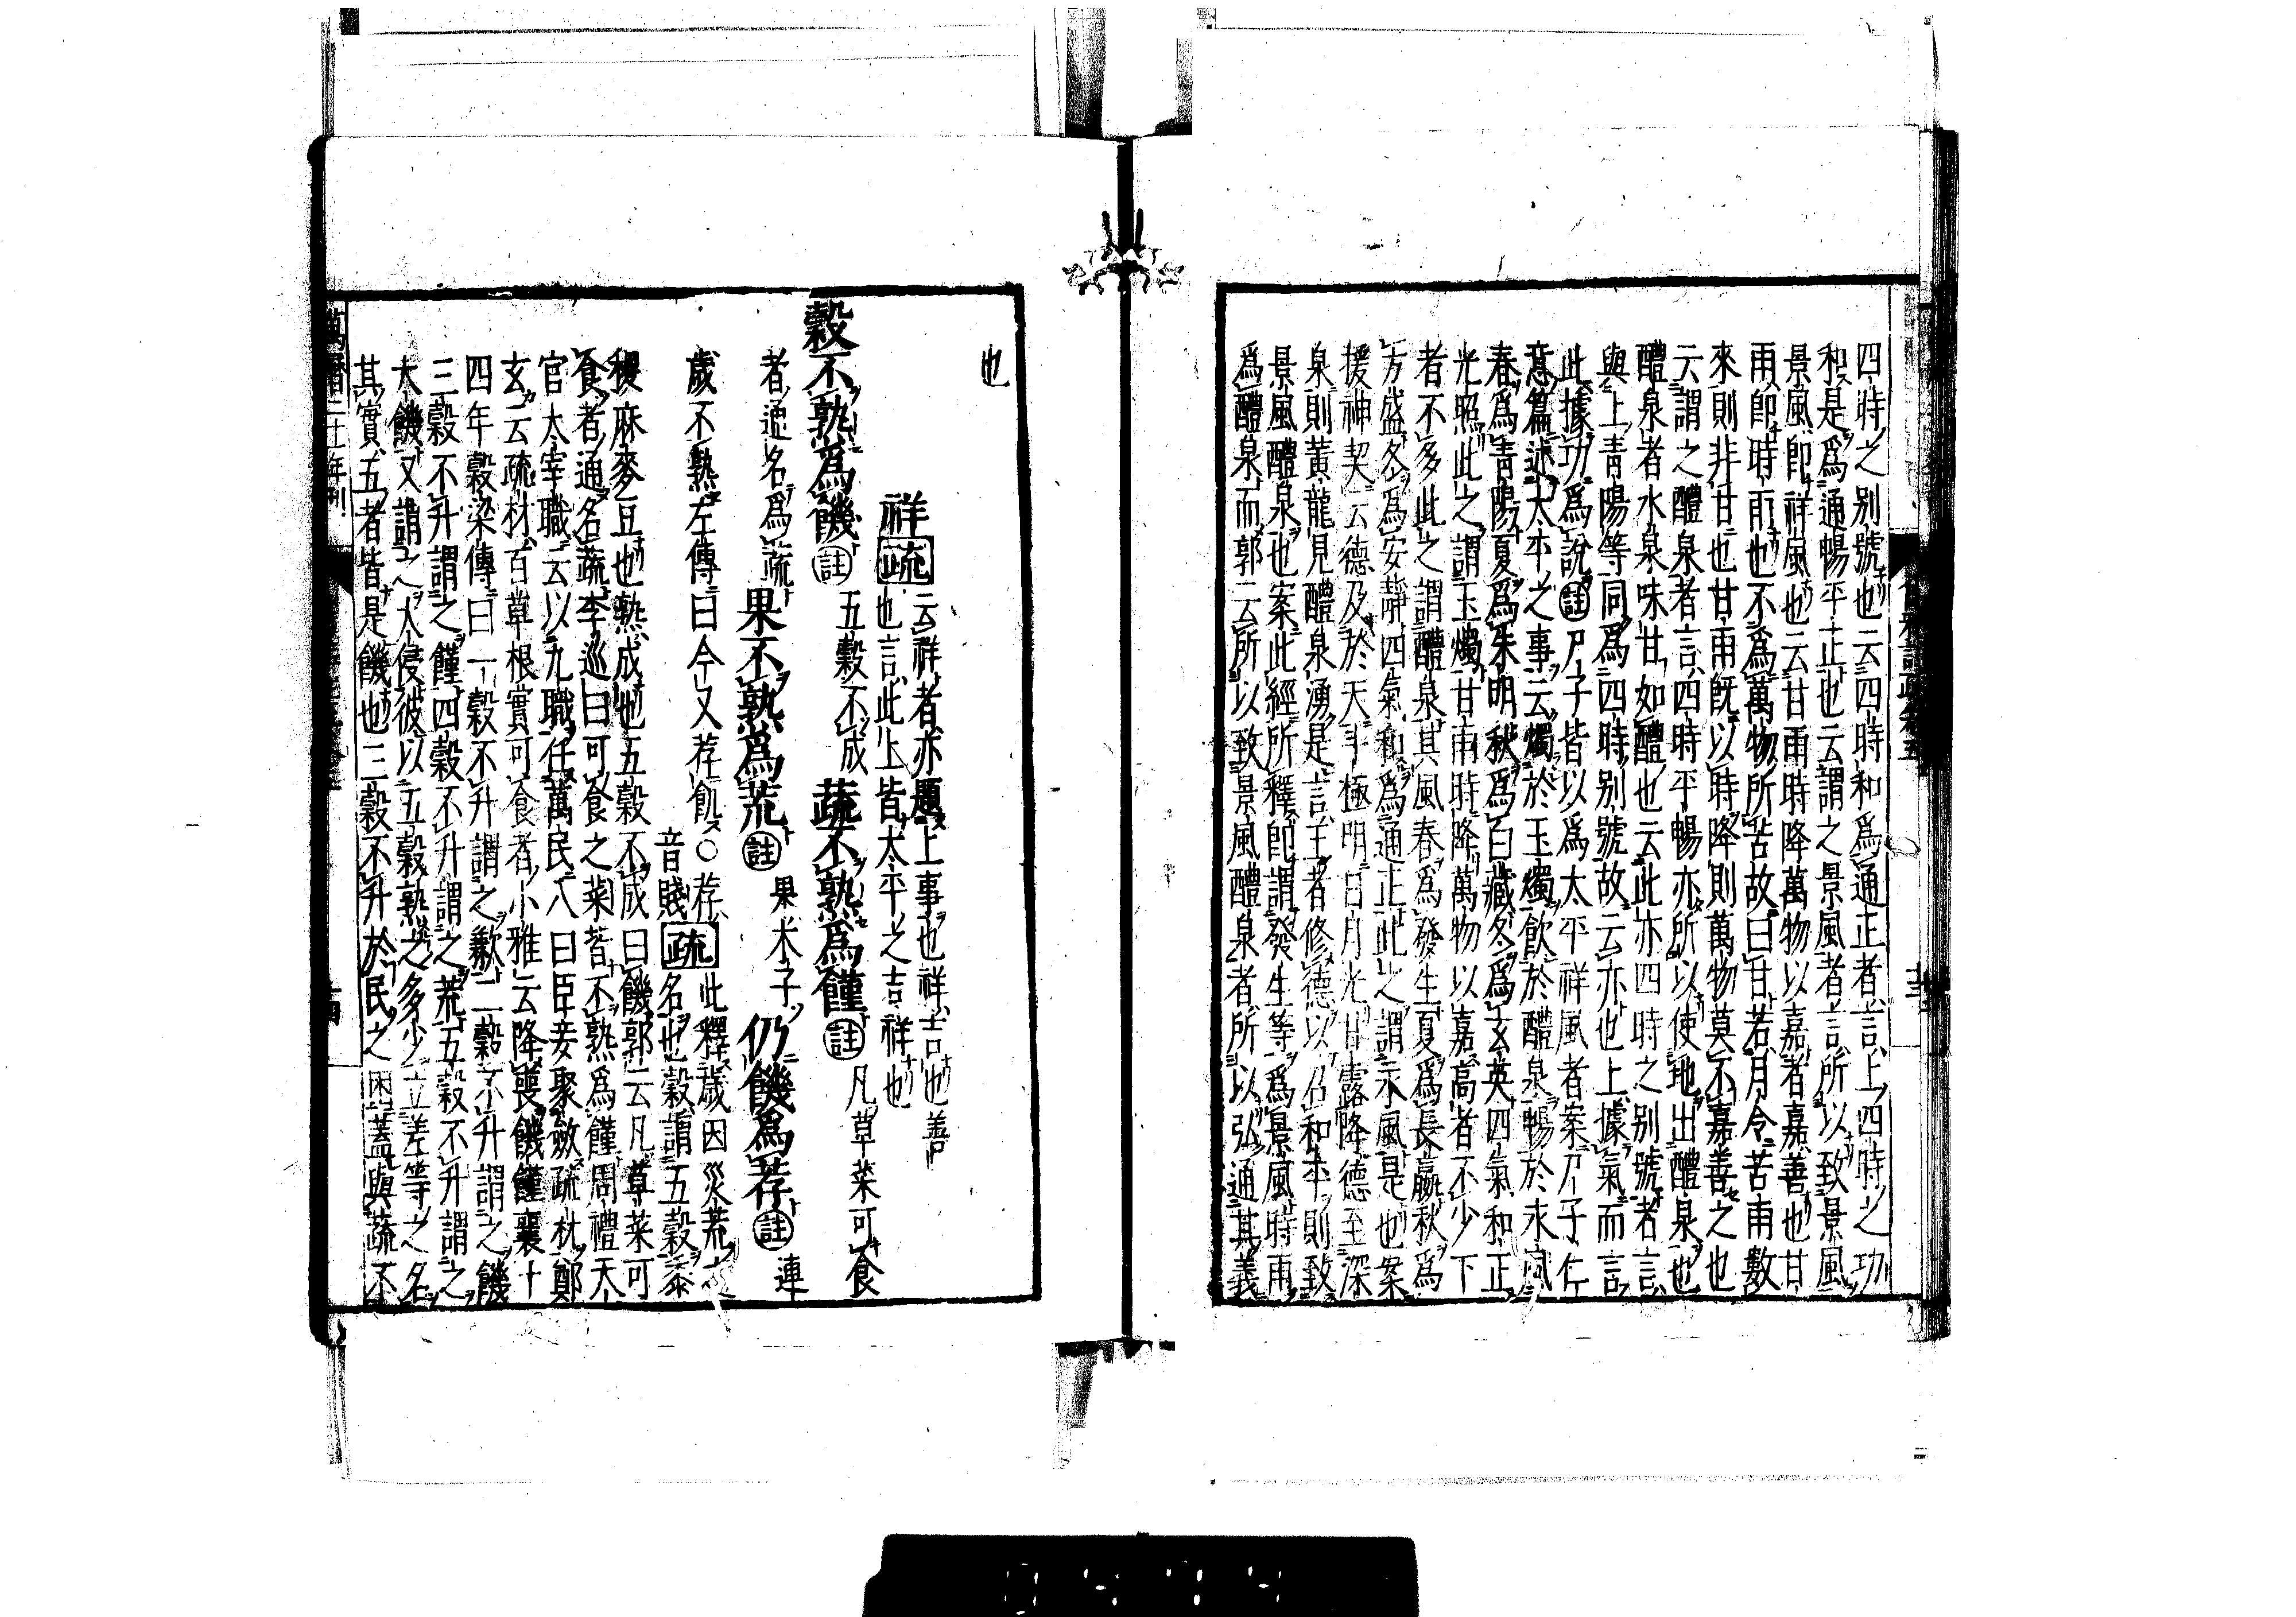 四時之別號也云四時和為通正者言上四時之功
和是為通暢平正也云謂之景風者言所以致景風
景風即祥風也云甘雨時降萬物以嘉者嘉善也甘
雨即時雨也不為萬物所苦故曰甘若月令苦雨數
來則非甘也甘雨既以時降則萬物莫不嘉善之也
云謂之醴泉者言四時平暢亦所以使地出醴泉也
醴泉者水泉味甘如醴也云此亦四時之別號者言
與上青陽等同為四時別號故云亦也上據氣而言
此據功為說註尸子皆以為太平祥風者案尸子仁
意篇述太平之事云燭於玉燭飲於醴泉暢於永風
春為青陽夏為朱明秋為白藏冬為玄英四氣和正
光照此之謂玉燭甘雨時降萬物以嘉高者不少下
者不多此之謂醴泉其風春為發生夏為長嬴秋為
方盛冬為安靜四氣和為通正此之謂永風是也案
援神契云德及於天斗極明日月光甘露降德至深
泉則黃龍見醴泉湧是言王者修德以召和平則致
景風醴泉也案此經所釋即謂發生等為景風時雨
為醴泉而郭云所以致景風醴泉者所以弘通其義
也
祥疏云祥者亦題上事也祥吉也善
也言此上皆太平之吉祥也
穀不熟為饑註五穀不成蔬不熟為饉註凡草菜可食
者通名為蔬果不熟為荒註果木子仍饑為荐註連
歲不熟左傳曰今又荐飢○荐
音賤疏此釋歲因災荒之
名也穀謂五穀黍
稷麻麥豆也熟成也五穀不成曰饑郭云凡草菜可
食者通名蔬李巡曰可食之菜皆不熟為饉周禮天
官太宰職云以九職任萬民八曰臣妾聚斂疏材鄭
玄云疏材百草根實可食者小雅云降喪饑饉襄十
四年穀梁傳曰一穀不升謂之歉二穀不升謂之饑
三穀不升謂之饉四穀不升謂之荒五穀不升謂之
大饑又謂之大侵彼以五穀熟之多少立差等之名
其實五者皆是饑也三穀不升於民之困蓋與蔬不
萬曆二十一年刊